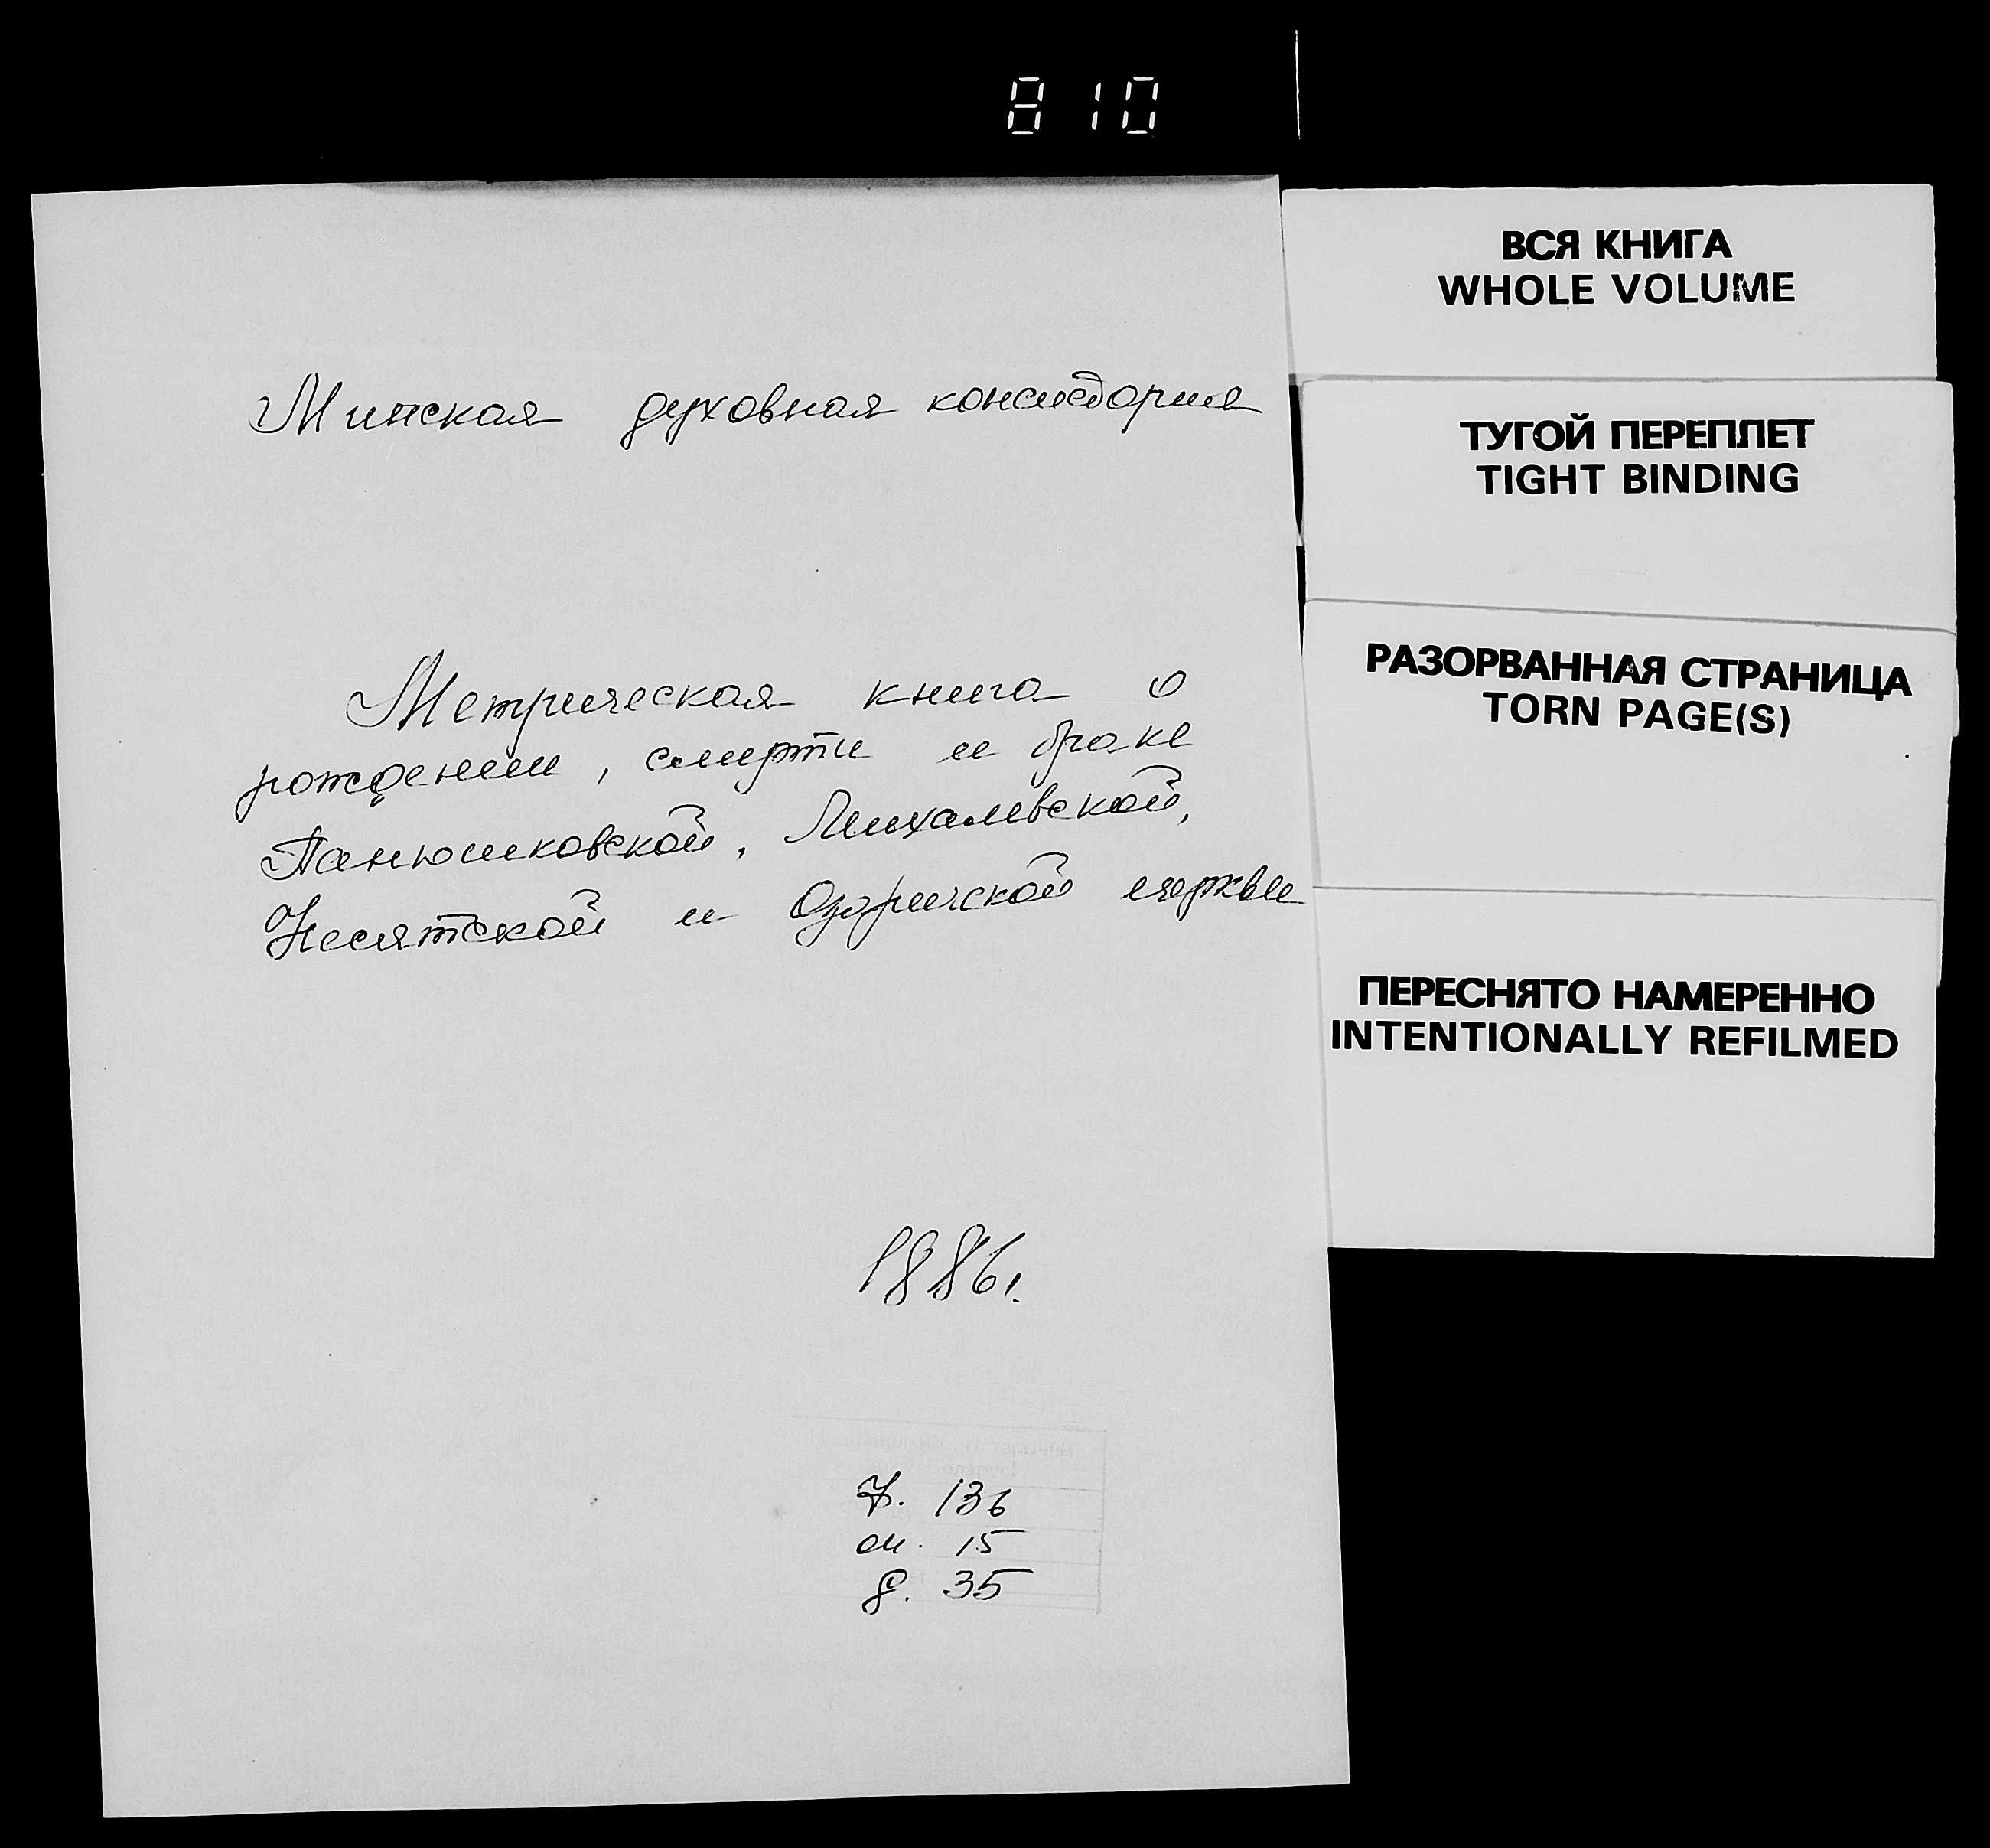 810
Минская духовная консистория
Метрическая книга о
рождении, смерти и браке
Панюшковской, Михалевской,
Несятской и Озаричской церкви
1886г.
ф. 136
оп. 15
д. 35
ВСЯ КНИГА
WHOLE VOLUME
ТУГОЙ ПЕРЕПЛЕТ
TIGHT BINDING
РАЗОРВАННАЯ СТРАНИЦА
TORN PAGE(S)
ПЕРЕСНЯТО НАМЕРЕННО
INTENTIONALLY REFILMED